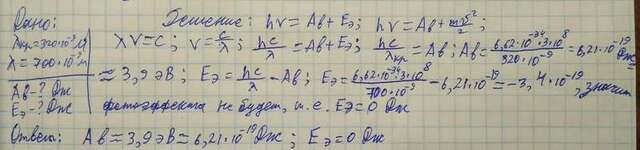 Дано:
λкр=320·10⁻⁹ м
λ=700·10⁻⁹ м
Aв-? Дж
Eэ-? Дж
Решение: hν=Aв+Eэ; hν=Aв+mυ²/2;
λν=c; ν=c/λ; hc/λ=Aв+Eэ; hc/λкр=Aв; Aв=6,62·10⁻³⁴·3·10⁸/320·10⁻⁹=6,21·10⁻¹⁹ Дж
≈3,9эВ; Eэ=hc/λ-Aв; Eэ=6,62·10⁻³⁴·3·10⁸/700·10⁻⁹-6,21·10⁻¹⁹=-3,4·10⁻¹⁹, значит
фотоэффекта не будет, т.е. Eэ=0 Дж
Ответ: Aв≈3,9эВ≈6,21·10⁻¹⁹ Дж; Eэ=0 Дж